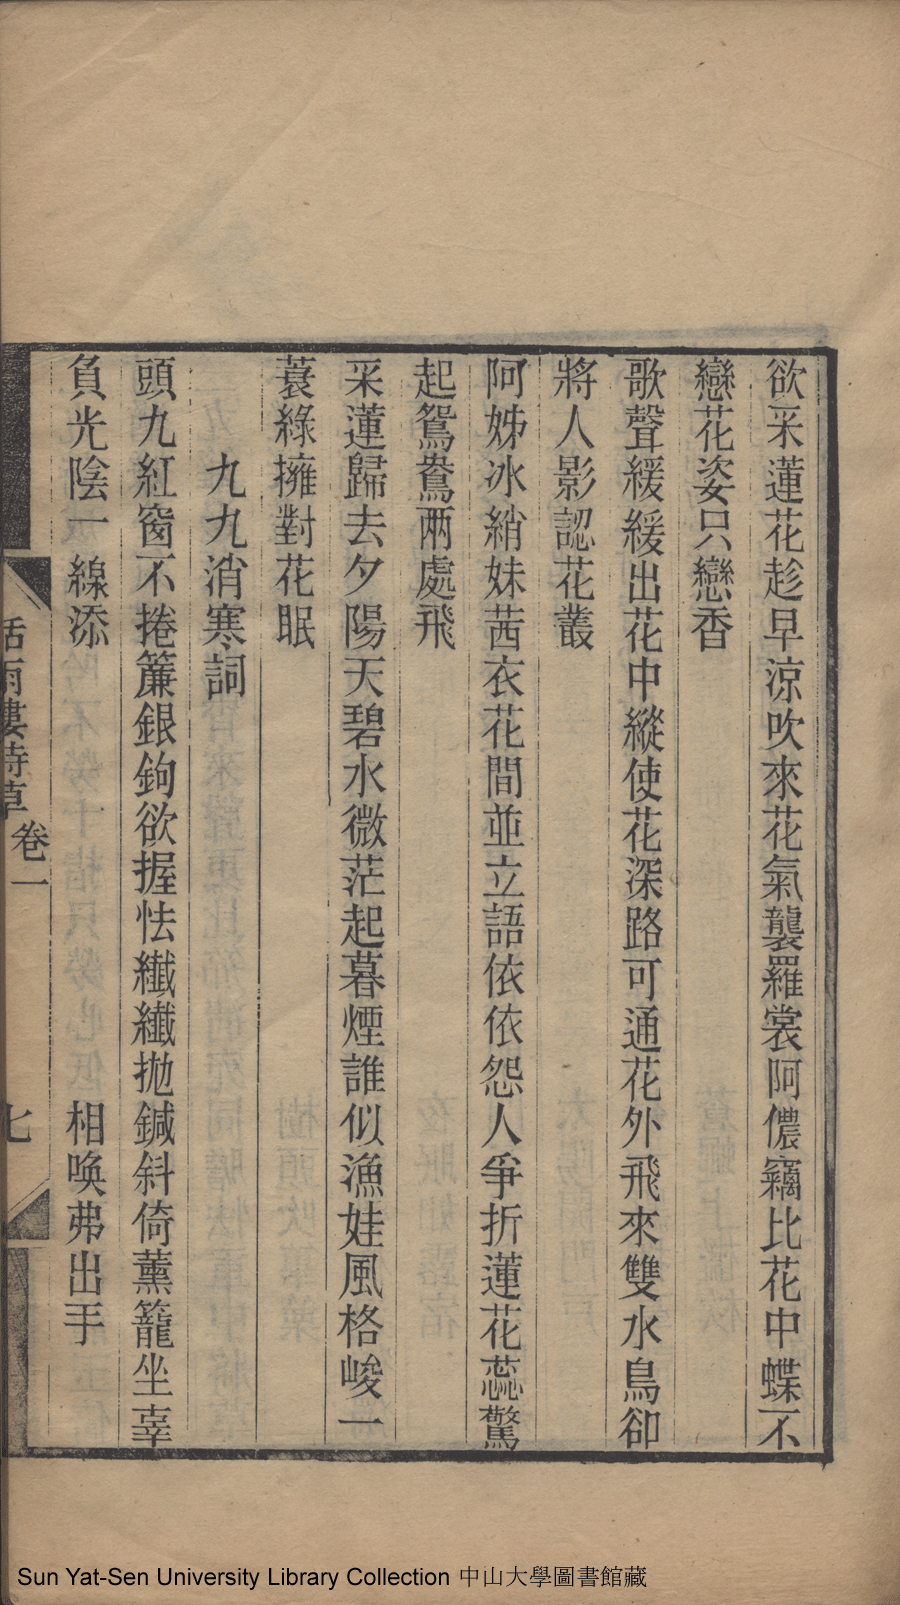 欲采蓮花趁早涼吹來花氣襲羅裳阿儂竊比花中蝶不
戀花姿只戀香
歌聲緩緩出花中縱使花深路可通花外飛來雙水鳥卻
將人影認花叢
阿姊冰綃妹茜衣花間並立語依依怨人爭折蓮花蕊驚
起鴛鴦兩處飛
采蓮歸去夕陽天碧水微茫起暮煙誰似漁娃風格峻一
蓑綠擁對花眠
九九消寒詞
頭九紅窗不捲簾銀鉤欲握怯纖纖拋鍼斜倚薰籠坐辜
負光陰一線添 相喚弗出手
雨樓詩草 卷一 七
Sun Yat-Sen University Library Collection 中山大學圖書館藏